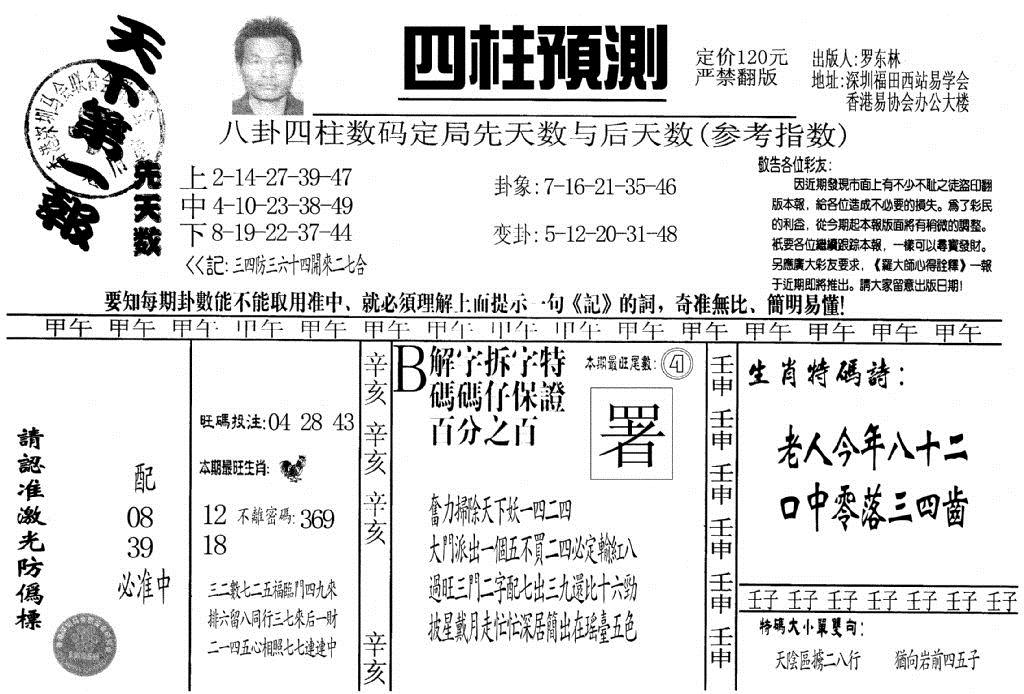 天下第一報
四柱預測
定价120元
严禁翻版
出版人:罗东林
地址:深圳福田西站易学会
香港易协会办公大楼
八卦四柱数码定局先天数与后天数(参考指数)
先天数
上2-14-27-39-47
中4-10-23-38-49
下8-19-22-37-44
<<記:三四防三六十四開來二七合
卦象:7-16-21-35-46
变卦:5-12-20-31-48
敬告各位彩友:
因近期發現市面上有不少不耻之徒盜印翻
版本報,給各位造成不必要的損失。爲了彩民
的利益,從今期起本報版面將有稍微的調整。
衹要各位繼續跟踪本報,一樣可以尋寶發財。
另應廣大彩友要求,《羅大師心得詮釋》一報
于近期即將推出。請大家留意出版日期!
要知每期卦數能不能取用准中、就必須理解上面提示一句《記》的詞,奇准無比、簡明易懂!
甲午 甲午 甲午 甲午 甲午 甲午 甲午 甲午 甲午 甲午 甲午 甲午 甲午 甲午 甲午
請認准激光防僞標
配
08
39
必准中
旺碼投注:04 28 43
本期最旺生肖:
12 不離密碼:369
18
三二數七二五福臨門四九來
排六留八同行三七來后一財
二一四五心相照七七連連中
辛亥 辛亥 辛亥 辛亥
B解字拆字特
碼碼仔保證
百分之百
本期最旺尾數:④
署
奮力掃除天下妖一四二四
大門派出一個五不買二四必定輸紅八
過旺三門二字配七出三九還比十六勁
披星戴月走忙忙深居簡出在瑤臺五色
壬申 壬申 壬申 壬申 壬申 壬申
生肖特碼詩:
老人今年八十二
口中零落三四齒
壬子 壬子 壬子 壬子 壬子 壬子 壬子
特碼大小單雙句:
天陰區擄二八行 猶向岩前四五子